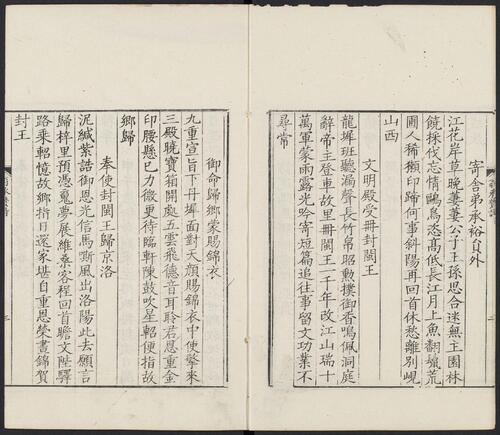 寄舍弟承裕員外
江花岸草晚萋萋公子王孫思合迷無主園林
饒採伐忘情鷗鳥恣高低長江月上魚翻鬣荒
圃人稀獺印蹄何事斜陽再回首休愁離別峴
山西
文明殿受冊封閩王
龍墀班聽漏聲長竹帛昭勲撲御香鳴佩洞庭
辭帝主登車故里冊閩王一千年改江山瑞十
萬軍蒙雨露光吟寄短篇追往事留文功業不
尋常
御命歸鄉蒙賜錦衣
九重宣旨下丹墀面對天顏賜錦衣中使擎來
三殿曉寶箱開處五雲飛德音耳聆君恩重金
印腰懸已力微更待臨軒陳鼓吹星軺便指故
鄉歸
奉使封閩王歸京洛
泥緘紫誥御恩光信馬嘶風出洛陽此去願言
歸梓里預憑魂夢展維桑客程回首瞻文陛驛
路乘軺憶故鄉指日還家堪自重恩榮晝錦賀
封王